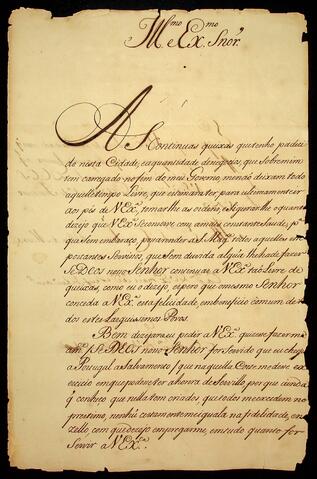 Ill.mo e Ex.mo Snor.
As Continuas queixas que tenho padeci
do nesta Cidade, e a quantidade de negocios, que sobre mim
tem carregado no fim do meu Governo, me não deixam todo
aquelle tempo Livre, que estimára ter para ultimamente ir
aos pés de V Ex.a tomar lhe as ordens, e segurar lhe o quanto
dezejo que V Ex.a se conserve com a mais constante saude; po
rém sem embaraço, para render a S. Mag.e todos aquelles im
portantes serviços, que sem duvida alguã lhe hade fazer
se DEOS nosso Senhor continuar a V Ex.a tão Livre de
queixas, como eu o dezejo, e espero que o mesmo Senhor
conceda a V Ex.a esta felicidade, em beneficio commum de to
dos estes Larguissimos Povos.
Bem dezejara eu pedir a V Ex.a quizesse fazer me
a m.ce se DEOS nosso Senhor for servido que eu chegue
a Portugal a salvamento que naquella Corte me desse ex
ercicio em que podesse ter a honra de servillo porque ainda
q conheço que nella tem criados, que todos me excedem no
prestimo, nenhũ certamente me iguala na fidelidade, e no
zello com que dezejo empregarme, em tudo quanto for
servir a V Ex.a